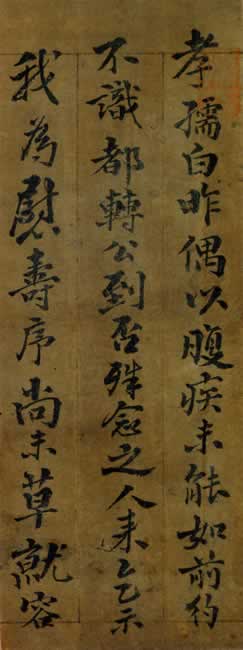 孝孺白昨偶以腹疾未能如前约
不識都轉公到否殊念之人来乞示
我為慰壽序尚未草就容